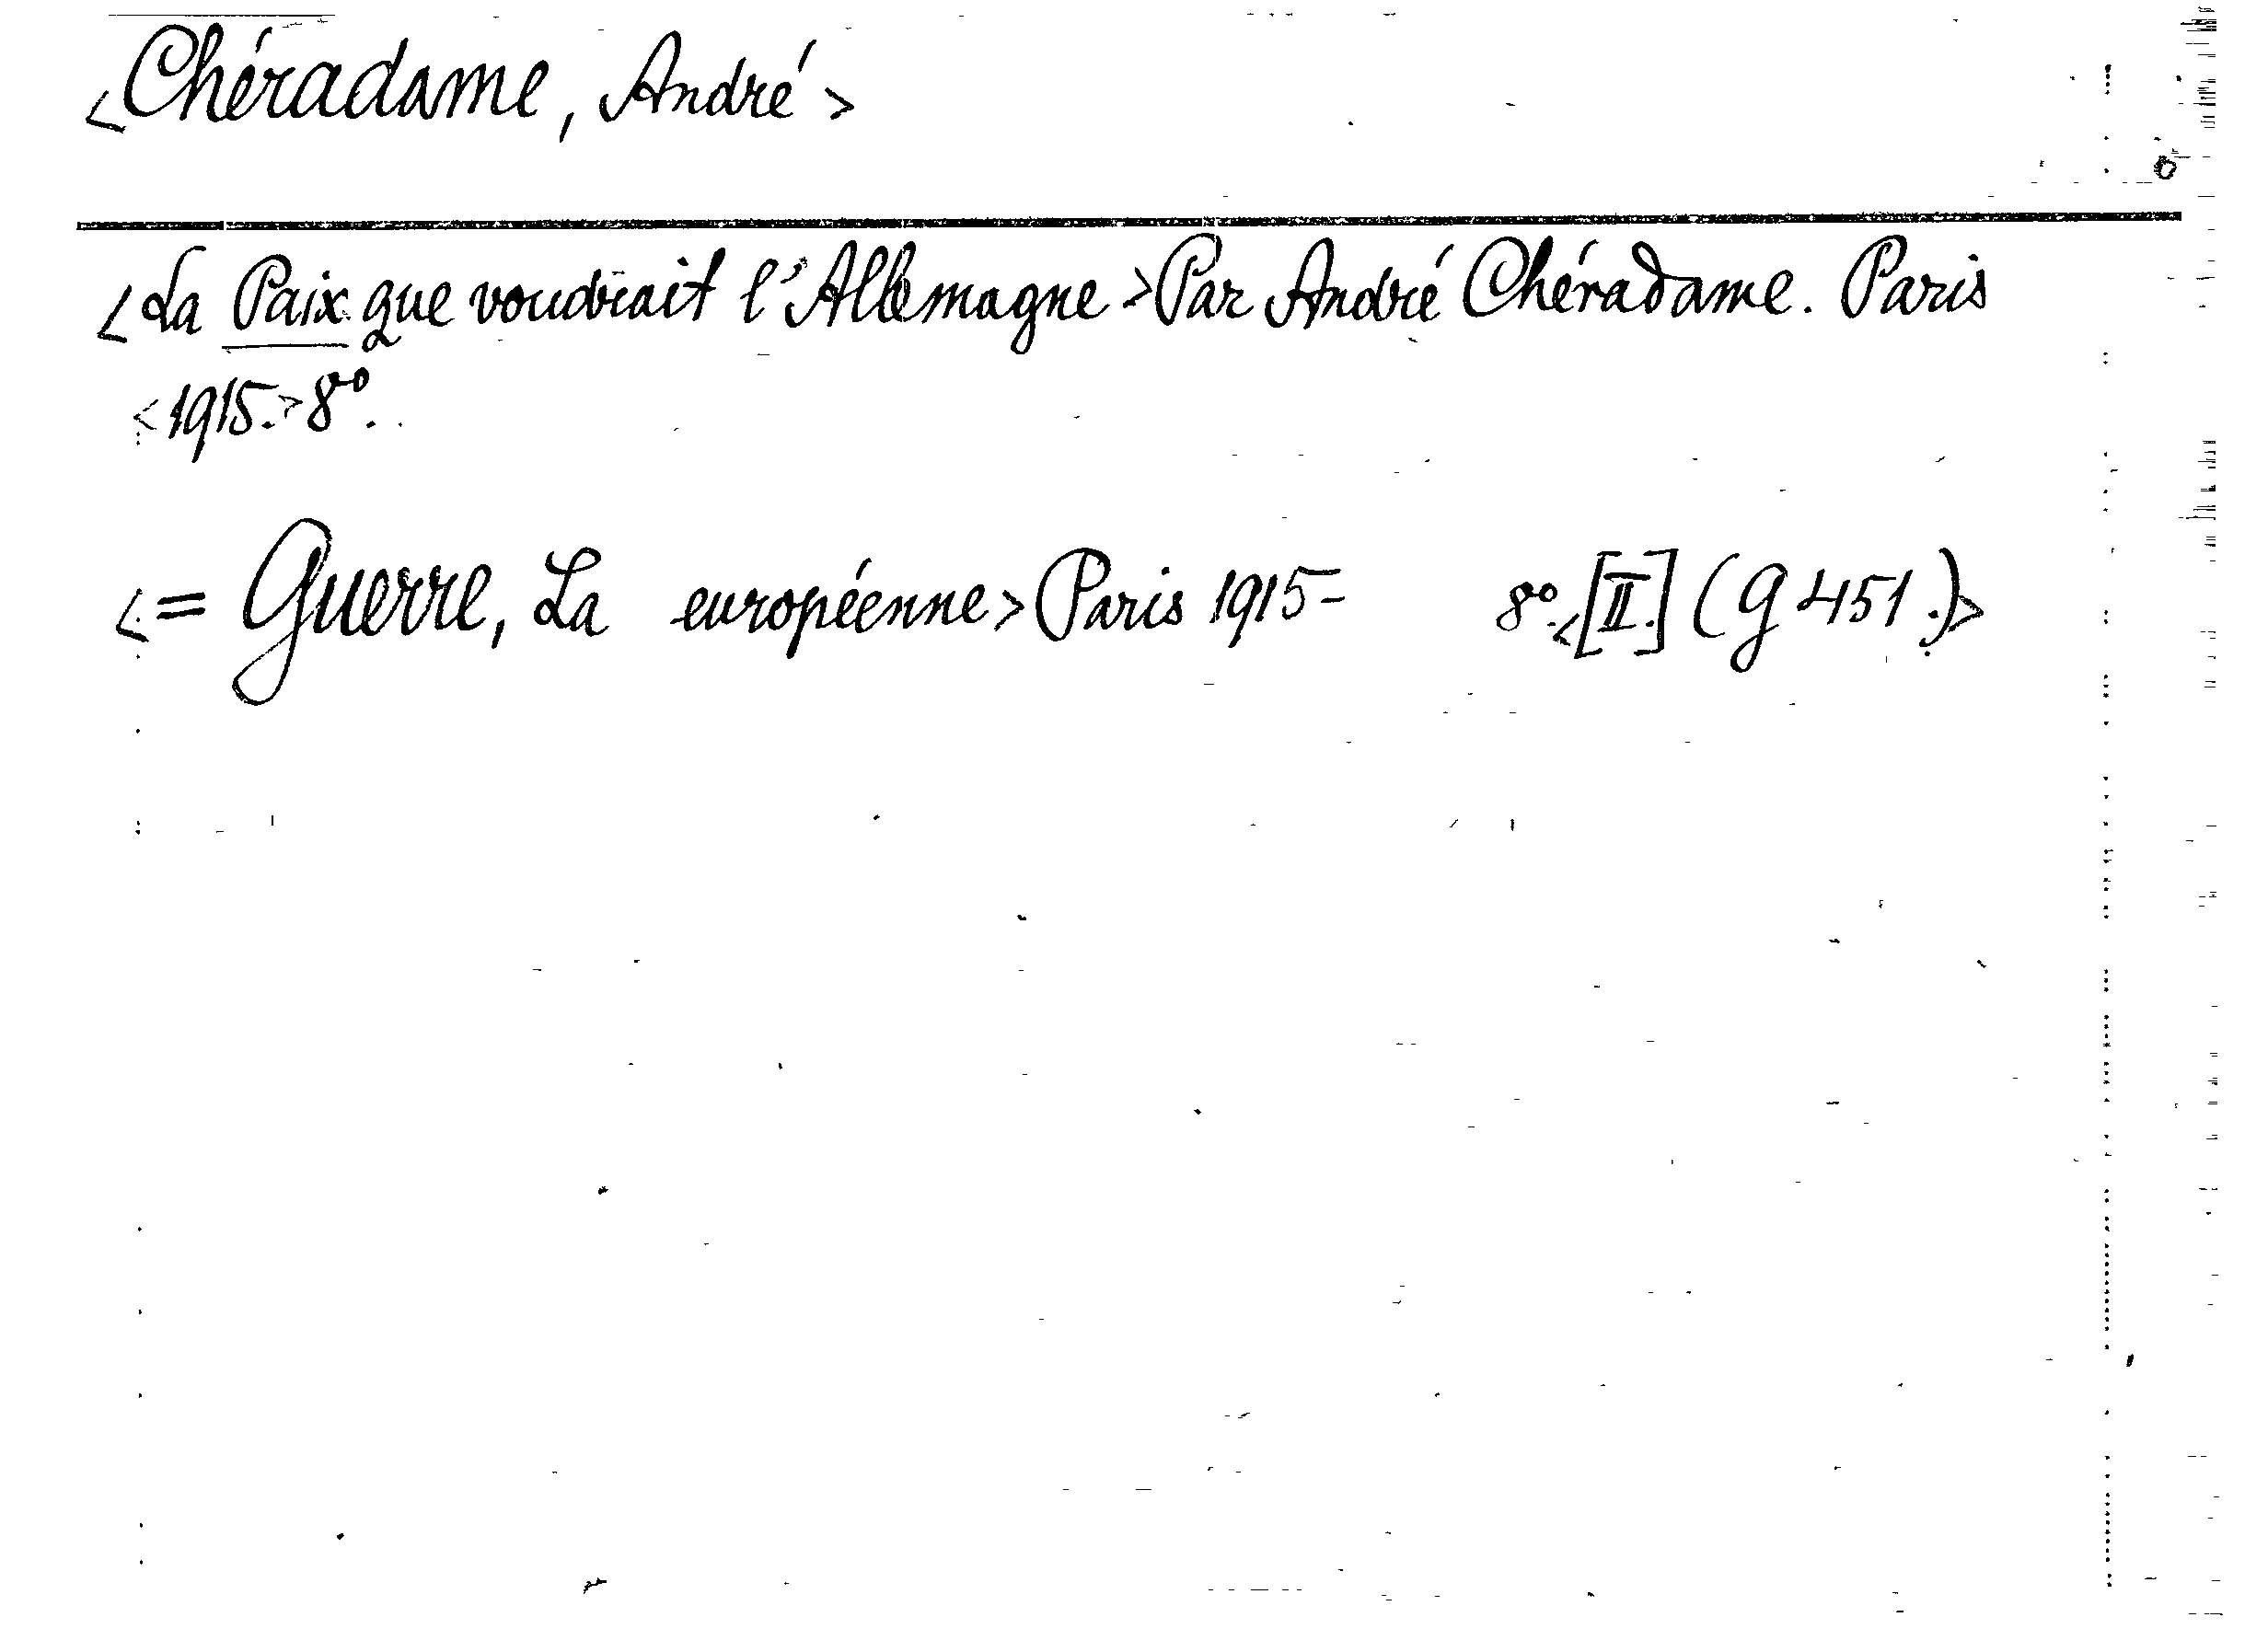 <Chéradame, André>
<La Paix que voudrait l'Allemagne> Par André Chéradame. Paris
<1915.> 8°.
<= Guerre, La européenne> Paris 1915- 8°.<[II.] (G 451.)>